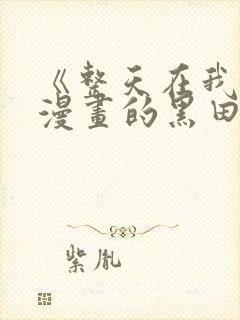 《整天在我
漫畫的黑田
紫胤